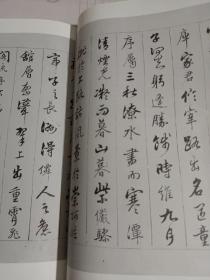 库家君作宰路出名區童
子何知躬逢勝餞時維九月
序屬三秋潦水盡而寒潭
清煙光凝而暮山紫儼驂
騑於上路訪風景於崇阿臨
帝子之長洲得僊人之舊
館層巒聳翠上出重霄飛
閣